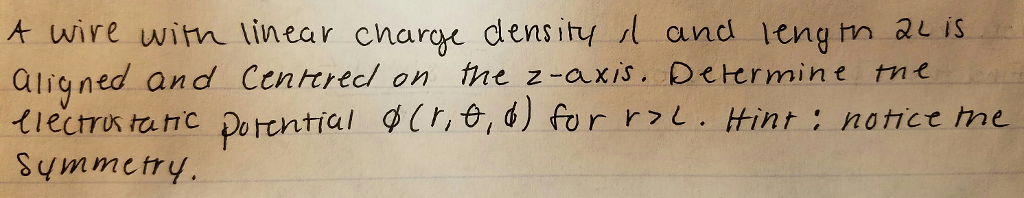 A wire with linear charge density λ and length 2L is
aligned and centered on the z-axis. Determine the
electrostatic potential ϕ(r,θ,ϕ) for r>L. Hint: notice the
symmetry.